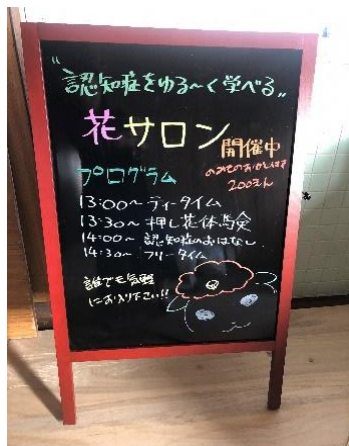 "認知症をゆる～く学べる„
花サロン
開催中
のみものおかしつき
200えん
プログラム
13:00～ ティータイム
13:30～ 押し花体験会
14:00～ 認知症のおはなし
14:30～ フリータイム
誰でも気軽
にお入り下さい!!